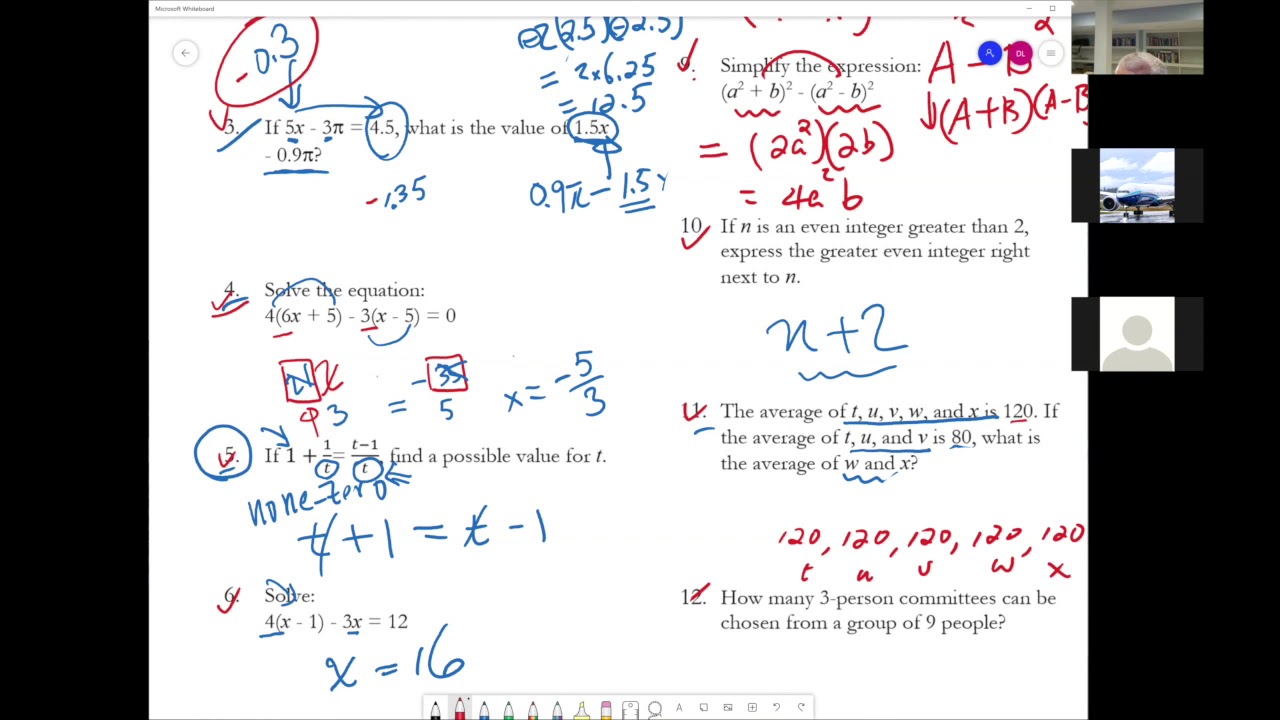 Microsoft Whiteboard
DL
-0.3
3. If 5x - 3π = 4.5, what is the value of 1.5x
- 0.9π?
-1.35
0.9π - 1.5
4. Solve the equation:
4(6x + 5) - 3(x - 5) = 0
21 x = -35
3 = 5
x = -5/3
5. If 1 + 1/t = t-1/t, find a possible value for t.
none-zero
t + 1 = t - 1
6. Solve:
4(x - 1) - 3x = 12
x = 16
= 2x6.25
= 12.5
9. Simplify the expression:
(a² + b)² - (a² - b)²
A - B
(A+B)(A-B
= (2a²)(2b)
= 4a²b
10. If n is an even integer greater than 2,
express the greater even integer right
next to n.
n+2
11. The average of t, u, v, w, and x is 120. If
the average of t, u, and v is 80, what is
the average of w and x?
120, 120, 120, 120, 120
t u v w x
12. How many 3-person committees can be
chosen from a group of 9 people?